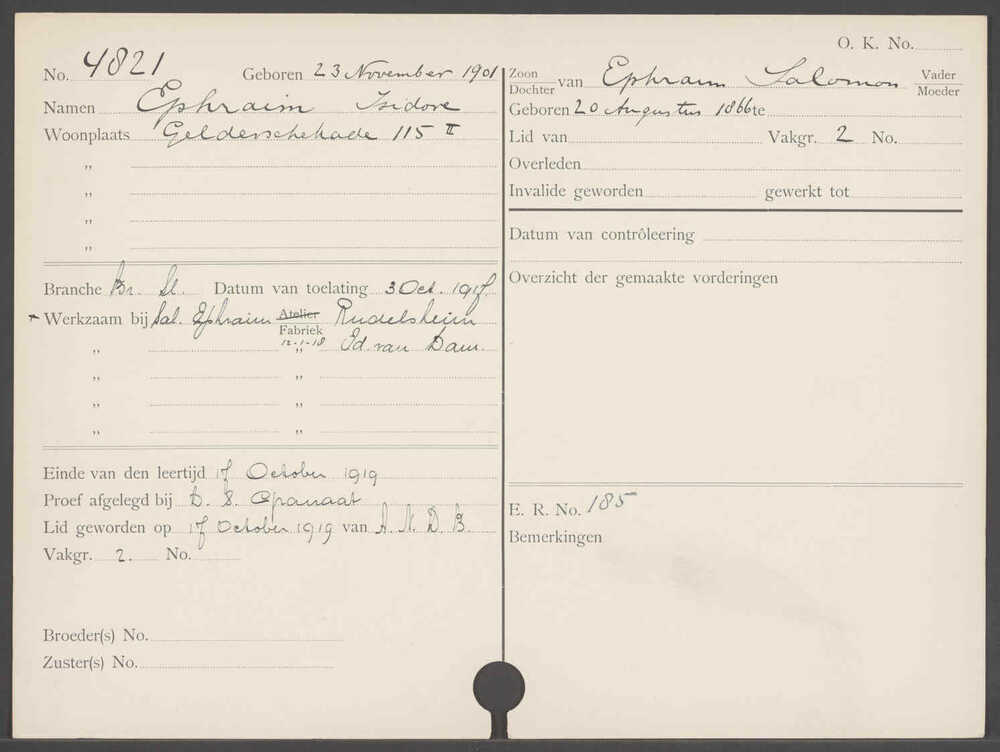 O. K. No.
No. 4821 Geboren 23 November 1901
Namen Ephraim Isidore
Woonplaats Gelderschekade 115 II
„
„
„
„
Branche Br. Sl. Datum van toelating 3 Oct. 1917.
Werkzaam bij Sal. Ephraim Atelier Fabriek Rudelsheim
„ 12-1-18 „ Ed. van Dam.
„ „
„ „
„ „
Einde van den leertijd 17 October 1919
Proef afgelegd bij D. S. Granaat
Lid geworden op 17 October 1919 van A. N. D. B.
Vakgr. 2. No.
Broeder(s) No.
Zuster(s) No.
Zoon Dochter van Ephraim Salomon Vader Moeder
Geboren 20 Augustus 1866 te
Lid van Vakgr. 2 No.
Overleden
Invalide geworden gewerkt tot
Datum van contrôleering
Overzicht der gemaakte vorderingen
E. R. No. 185
Bemerkingen